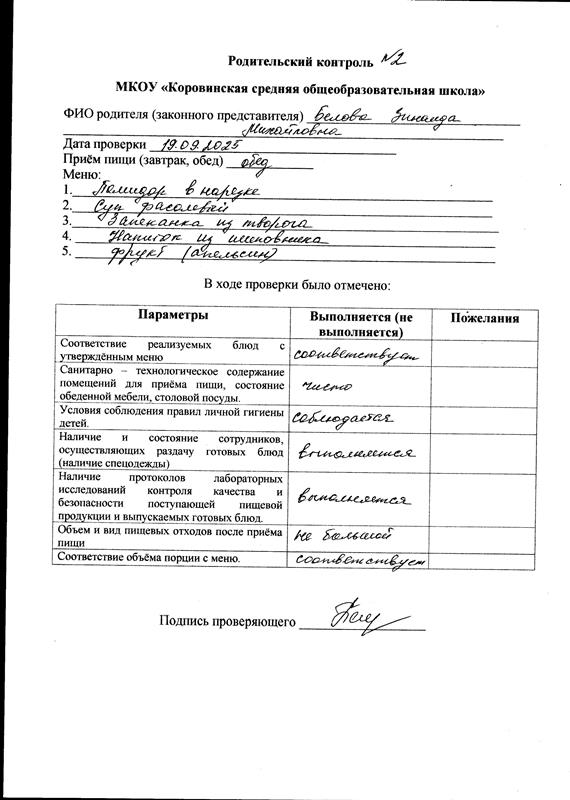 Родительский контроль №2
МКОУ «Коровинская средняя общеобразовательная школа»
ФИО родителя (законного представителя) Белова Зинаида
Михайловна
Дата проверки 19.09.2025
Приём пищи (завтрак, обед) обед
Меню:
1. Помидор в нарезке
2. Суп фасолевый
3. Запеканка из творога
4. Напиток из шиповника
5. фрукт (апельсин)
В ходе проверки было отмечено:
Параметры Выполняется (не выполняется) Пожелания
Соответствие реализуемых блюд с
утверждённым меню соответствует
Санитарно – технологическое содержание
помещений для приёма пищи, состояние
обеденной мебели, столовой посуды. чисто
Условия соблюдения правил личной гигиены
детей. соблюдается
Наличие и состояние сотрудников,
осуществляющих раздачу готовых блюд
(наличие спецодежды) выполняется
Наличие протоколов лабораторных
исследований контроля качества и
безопасности поступающей пищевой
продукции и выпускаемых готовых блюд. выполняется
Объем и вид пищевых отходов после приёма
пищи не большой
Соответствие объёма порции с меню. соответствует
Подпись проверяющего